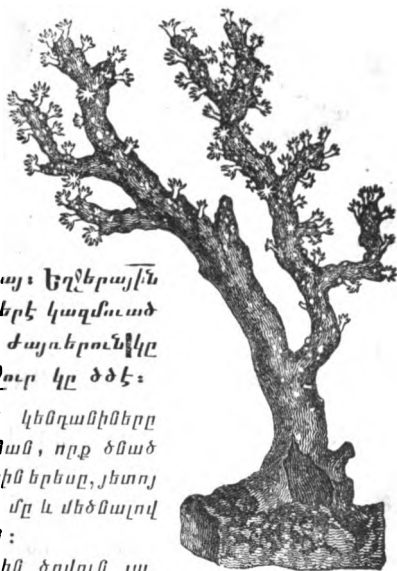 այ։ Եղջերային
երէ կազմուած
ժայռերուն կը
ուր կը ծծէ։
կենդանիները
ման, որք ծնած
ին երեսը, յետոյ
մը և մեծնալով
։
ին ծովուն